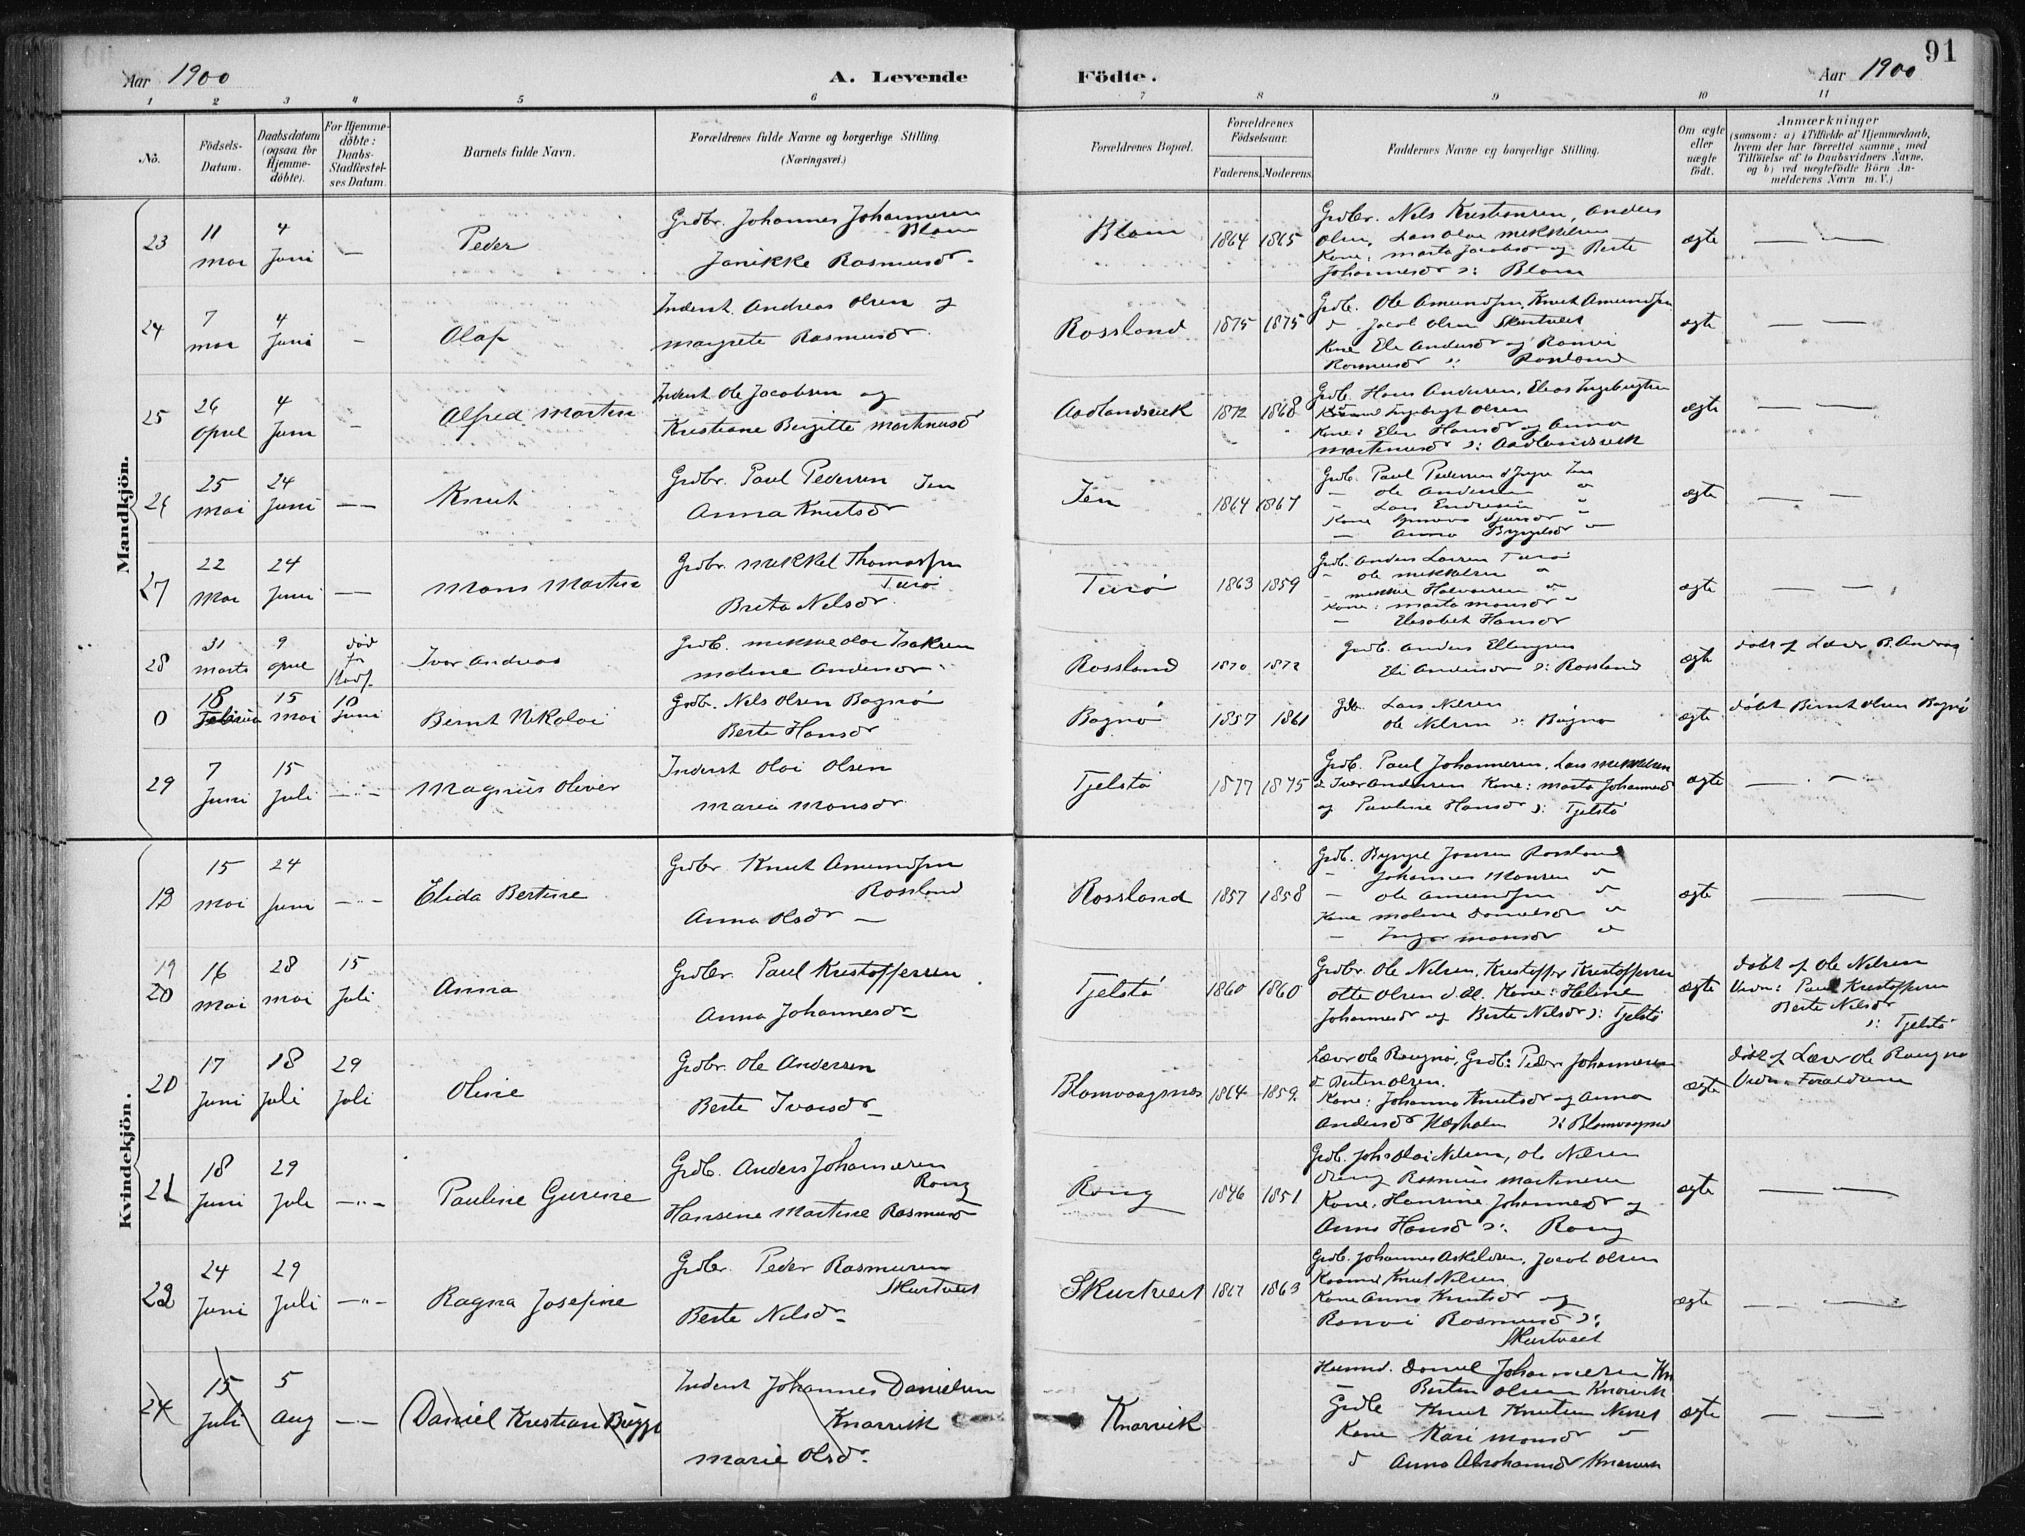 Aar 1900
A. Levende
Födte.
Aar 1900
91
1 2 3 4 5 6 7 8 9 10 11
No.
Födsels-
Datum.
Daabsdatum
(ogsaa for
Hjemme-
döbte).
For Hjemme-
döbte:
Daabs-
Stadfæstel-
ses Datum.
Barnets fulde Navn.
Forældrenes fulde Navne og borgerlige Stilling.
(Næringsvei.)
Forældrenes Bopæl.
Forældrenes
Födselsaar.
Faderens. Moderens.
Faddernes Navne og borgerlige Stilling.
Om ægte
eller
uægte
födt.
Anmærkninger
(saasom: a) i Tilfælde af Hjemmedaab,
hvem der har forrettet samme, med
Tilföielse af to Daabsvidners Navne,
og b) ved uægtefödte Börn An-
melderens Navn m. V.)
Mandkjön.
23
11
mai
4
Juni
—
Peder
Grdbr. Johannes Johannesen
Blom
Janikke Rasmusdr
Blom
1864 1865
Grdbr. Nels Kristiansen, Anders
Olsen, Lars Olai Mikkelsen
Kone: Marta Jacobsdr og Berte
Johannesdr : Blom
ægte
— —
24
7
mai
4
Juni
-
Olaf
Inderst. Andreas Olsen og
Margrete Rasmusdr
Rossland
1875 1875
Grdb. Ole Amundsen, Knut Amundsen
Jacob Olsen Skurtveit
Kone Eli Andersdr og Ranvei
Rasmusdr : Rossland
ægte
— —
25
26
April
4
Juni
-
Alfred Martin
Inderst Ole Jacobsen og
Kristiane Birgitte Martinusd
Aadlandsvik
1872 1868
Grdb. Hans Andersen, Elias Ingebrigtsen
Ingebrigt Olsen
Kone: Elen Hansdr og Anna
Martinusd : Aadlandsvik
ægte
— —
26
25
mai
24
Juni
—
Knut
Grdbr. Paul Pedersen Jen
Anna Knutsdr
Jen
1864 1867
Grdb. Paul Pedersen Jen
- Ole Andersen "
- Lars Endresen "
Kone
- Anna
ægte
— —
27
22
Mai
24
Juni
—
Mons Martin
Grdbr. Mikkel Thomassen
Turö
Brita Nelsdr
Turö
1863 1859
Grdb. Anders Larsen Turö
- Ole Mikkelsen "
- Mikkel Halvorsen "
Kone: Marta Monsdr "
- Elisabet Hansdr
ægte
— —
28
31
marts
9
April
död
för
Stadf.
Iver Andreas
Grdb. Mikkel Olai Isaksen
Malene Andersdr
Rossland
1870 1872
Grdb. Anders Ellingsen
Eli Andersdr : Rossland
ægte
döbt af Lærer B. Andrås
0
18
Februa
15
mai
10
Juni
Bernt Nikolai
Grdb. Nils Olsen Bognö
Berte Hansdr
Bognö
1857 1861
Grdb. Lars Nilsen
Ole Nilsen : Bognö
ægte
döbt Bernt Olsen Bognö
29
7
Juni
15
Juli
—
Magnus Oliver
Inderst Olai Olsen
Maria Monsdr
Tjelstö
1877 1875
Grdb. Paul Johannesen, Lars Mikkelsen
& Iver Andersen Kone: Marta Johannesd
og Pauline Hansdr : Tjelstö
ægte
— —
Kvindekjön.
18
15
mai
24
Juni
—
Elida Bertine
Grdbr Knut Amundsen
Rossland
Anna Olsdr —
Rossland
1857 1858
Grdb. Rossland
- Johannes Monsen "
- Ole Amundsen "
Kone Malene Danielsdr "
- Inger Monsdr "
ægte
— —
19
20
16
mai
28
mai
15
Juli
Anna
Grdbr. Paul Kristoffersen
Anna Johannesdr
Tjelstö
1860 1860
Grdbr. Ole Nilsen, Kristoffer Kristoffersen
Otto Olsen Kone: Heline
Johannesdr og Berte Nilsdr : Tjelstö
ægte
döbt af Ole Nilsen
Vidn: Paul Kristoffersen
Berte Nilsdr
: Tjelstö
20
17
Juni
18
Juli
29
Juli
Oline
Grdbr. Ole Andersen
Berte Ivarsdr
Blomvaagsnæs
1864 1859
Lærer Ole Rongnö, Grdb: Peder Johannesen
& Berten Olsen.
Kone: Johanna Knutsdr og Anna
Andersdr : Blomvaagsnæs
ægte
döbt af Lærer Ole Rongnö
Vidn. Forældrene
21
18
Juni
29
Juli
—
Pauline Gurine
Grdb. Anders Johannesen
Rong
Hansine Martine Rasmusd
Rong
1846 1851
Grdb. Johs Olai Nilsen, Ole Nilsen
Dreng Rasmus Martinsen
Kone: Hansine Johannesdr og
Anna Hansd : Rong
ægte
— —
22
24
Juni
29
Juli
—
Ragna Josefine
Grdbr. Peder Rasmusen
Skurtveit
Berte Nelsdr
Skurtveit
1863
Grdb. Johannes Askeldsen, Jacob Olsen
Knut Nilsen
Kone Anna Knutsdr og
Ranvei Rasmusd :
Skurtveit
ægte
— —
24
15
Juli
5
Aug
—
Daniel Kristian
Inderst Johannes Danielsen
Knarvik
Marie Olsdr
Knarvik
Husmd. Daniel Johannesen Kn
Berten Olsen Knarvik
Grdb Knut Knutsen
Kone Kari Monsdr "
Anna Abrahamsdr Knarvik
ægte
— —